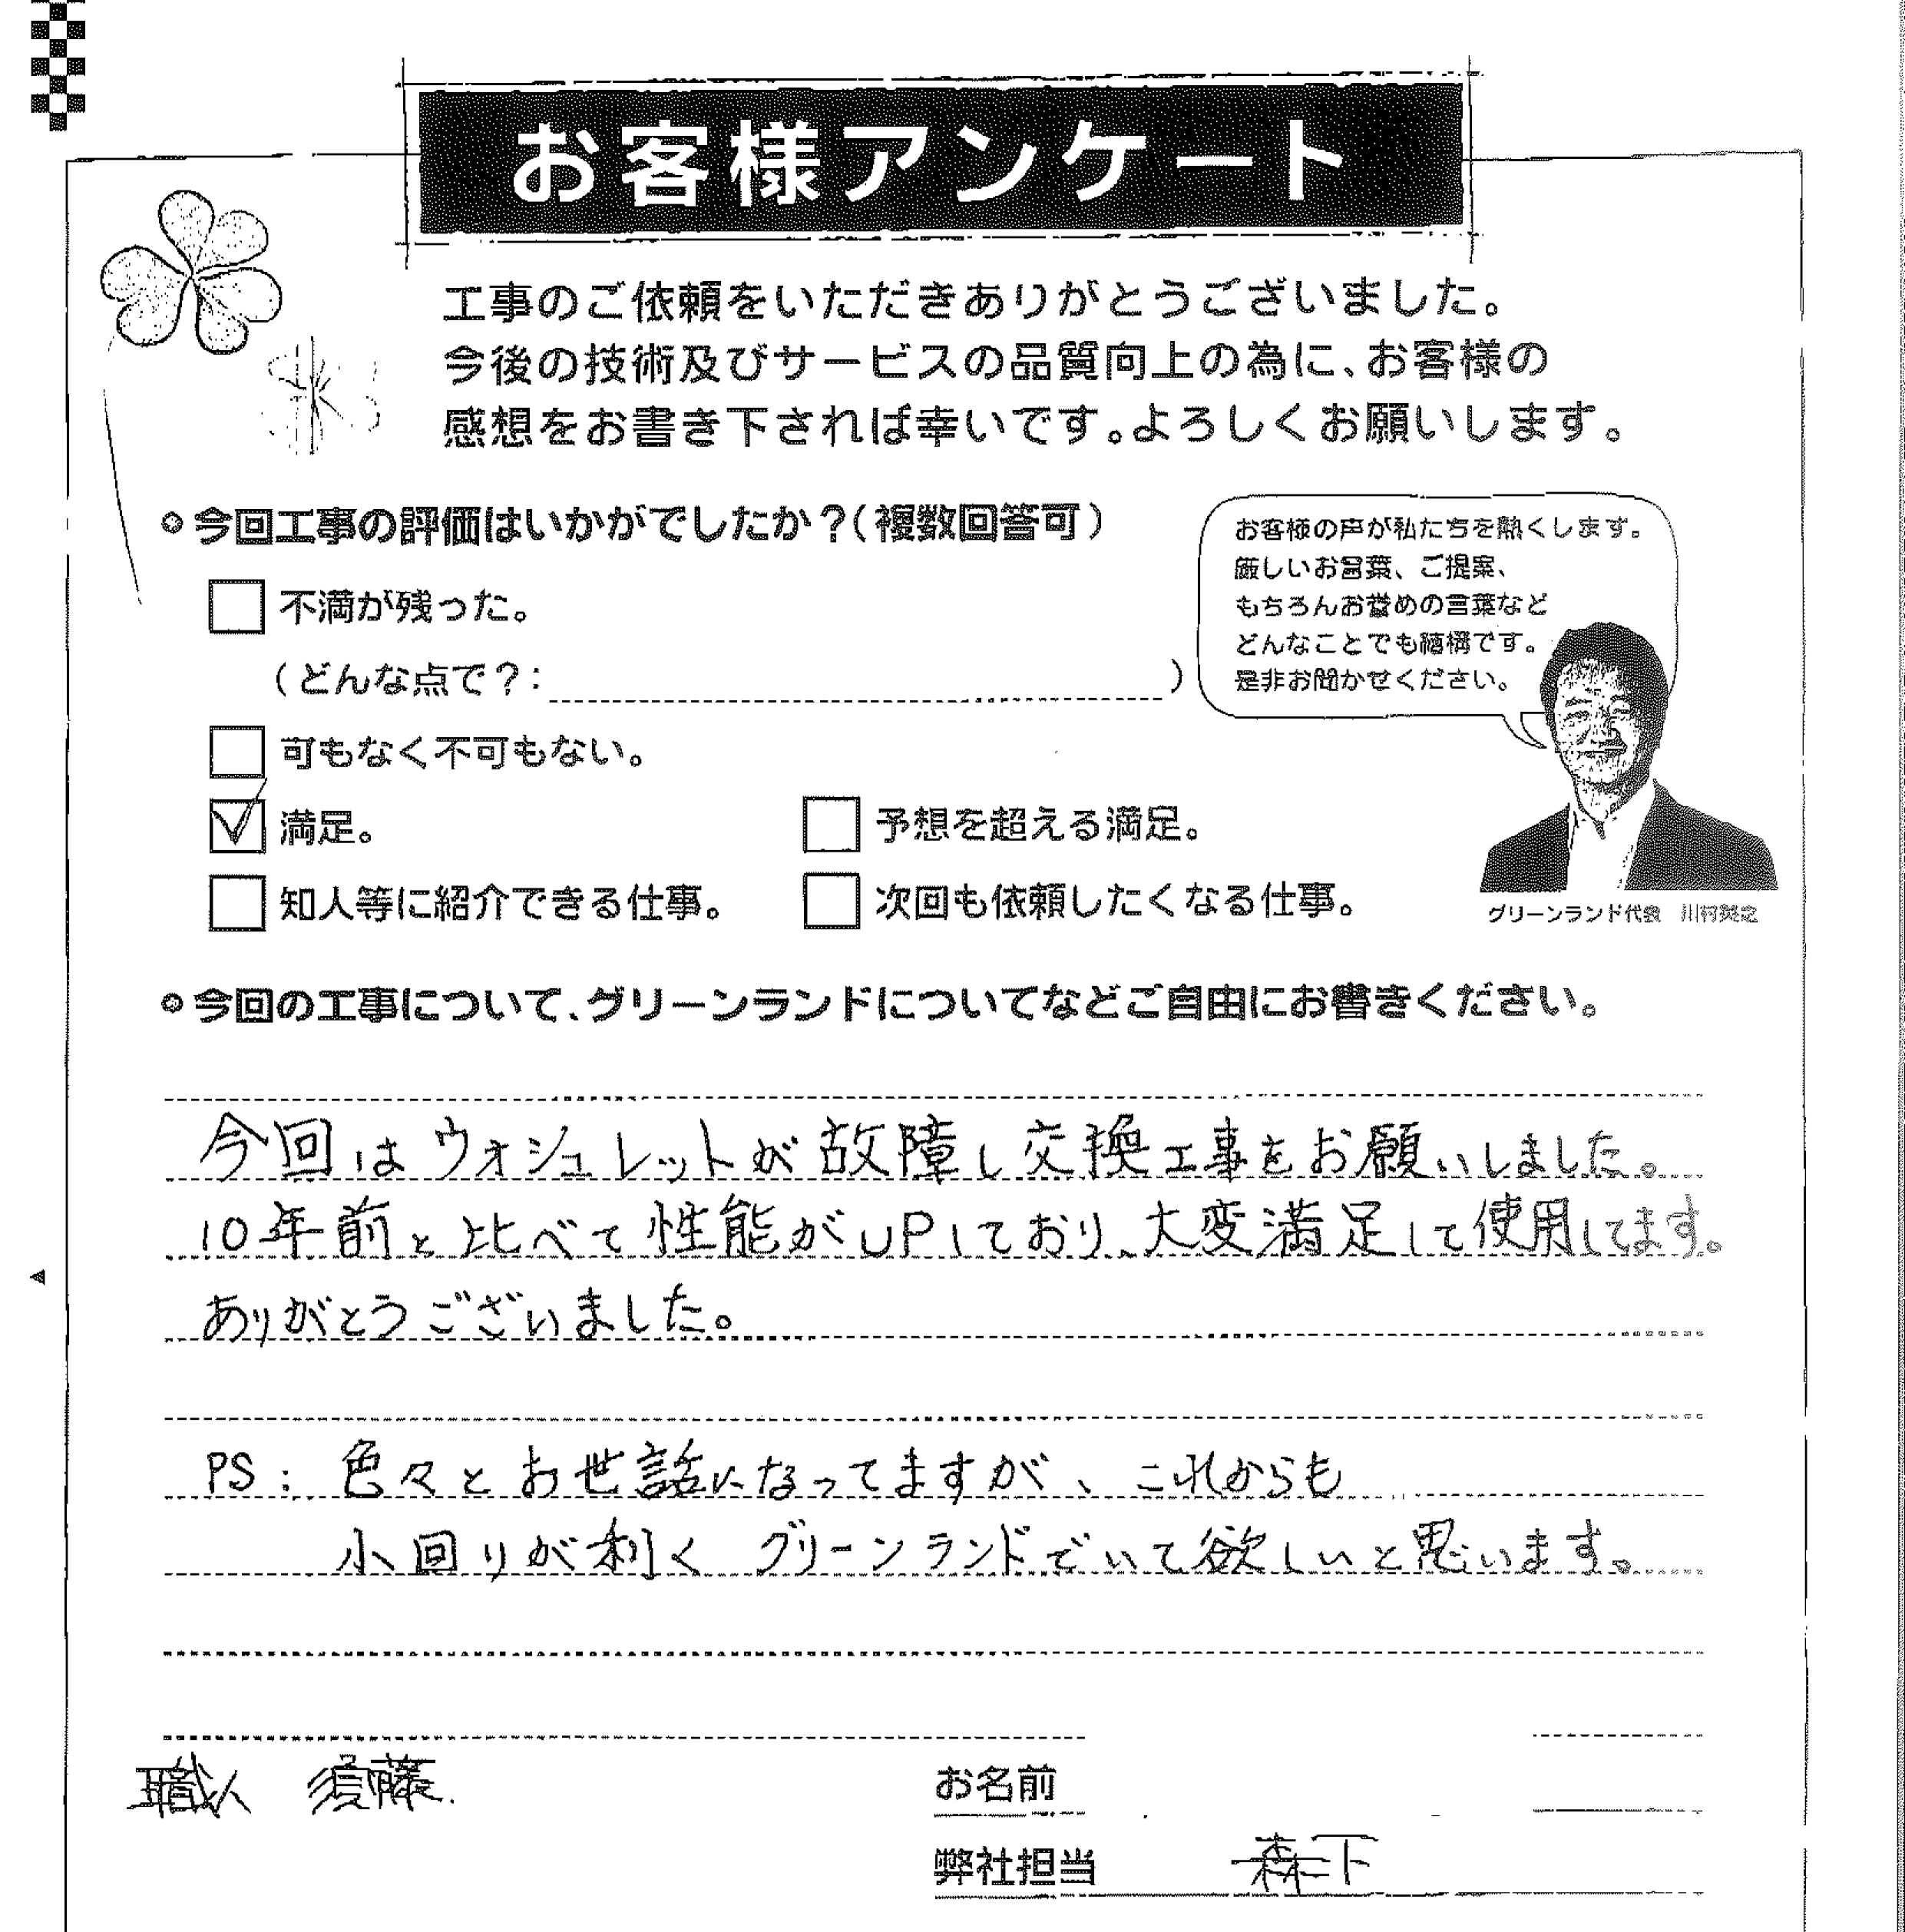 お客様アンケート
工事のご依頼をいただきありがとうございました。
今後の技術及びサービスの品質向上の為に、お客様の
感想をお書き下されば幸いです。よろしくお願いします。
今回工事の評価はいかがでしたか？（複数回答可）
不満が残った。
（どんな点で？：　　　）
可もなく不可もない。
満足。
予想を超える満足。
知人等に紹介できる仕事。
次回も依頼したくなる仕事。
お客様の声が私たちを熱くします。
厳しいお言葉、ご提案、
もちろんお誉めの言葉など
どんなことでも結構です。
是非お聞かせください。
グリーンランド代表　川村
今回の工事について、グリーンランドについてなどご自由にお書きください。
今回はウォシュレットが故障し交換工事をお願いしました。
10年前と比べて性能がUPしており、大変満足して使用してます。
ありがとうございました。
PS：色々とお世話になってますが、これからも
小回りが利く グリーンランドでいて欲しいと思います。
職人　須藤.
お名前
弊社担当　森下